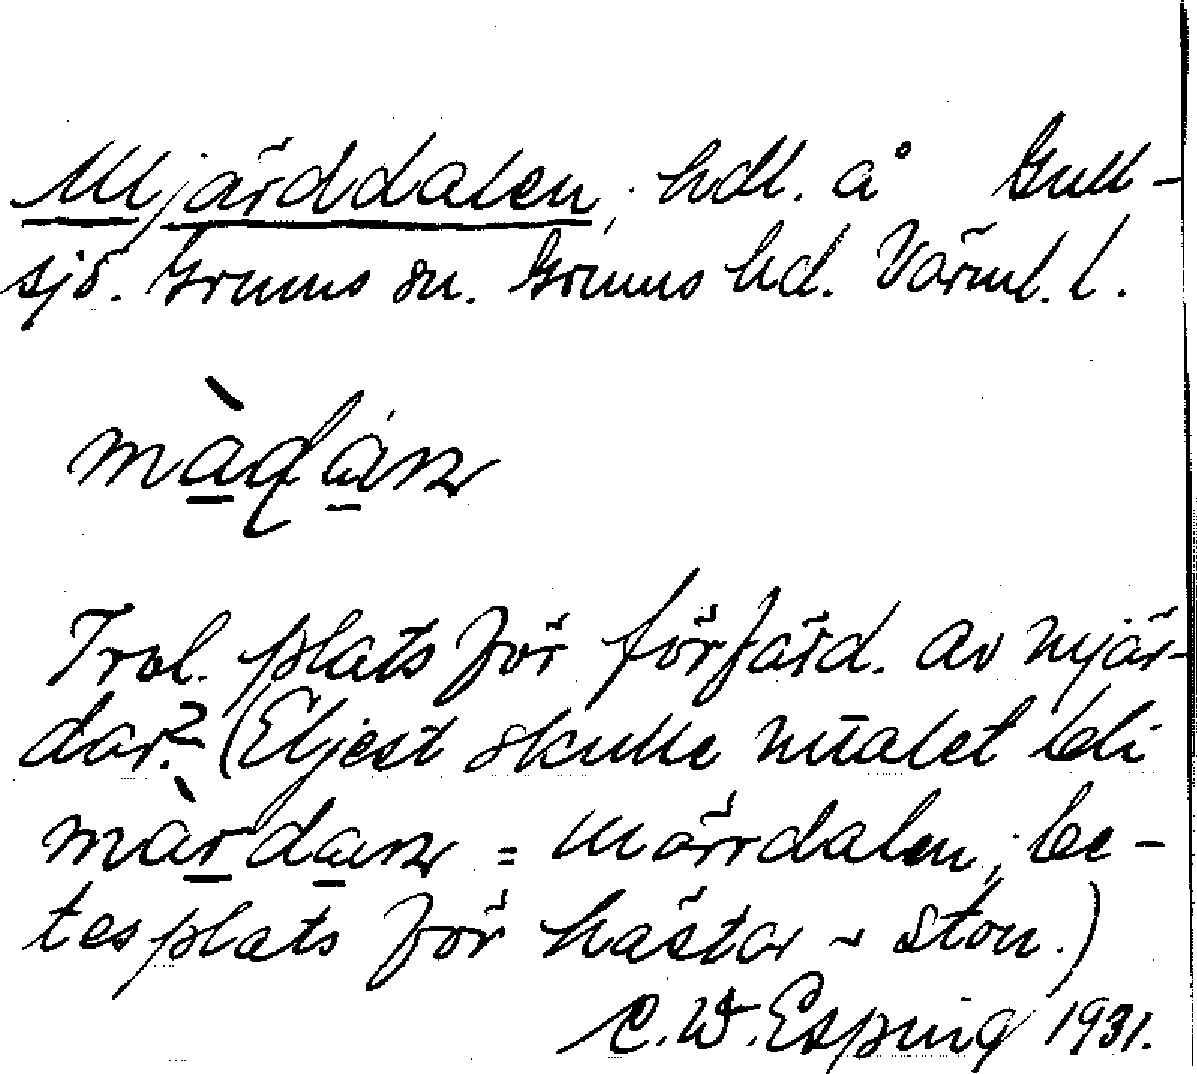 Mjärddalen, hdl. å Gull-
sjö. Grums sn. Grums hd. Värml. l.
Trol. plats för förfärd. av mjär-
dar? (Eljest skulle målet bli
= märrdalen, be-
tesplats för hästar & ston.)
C. W. Esping 1931.